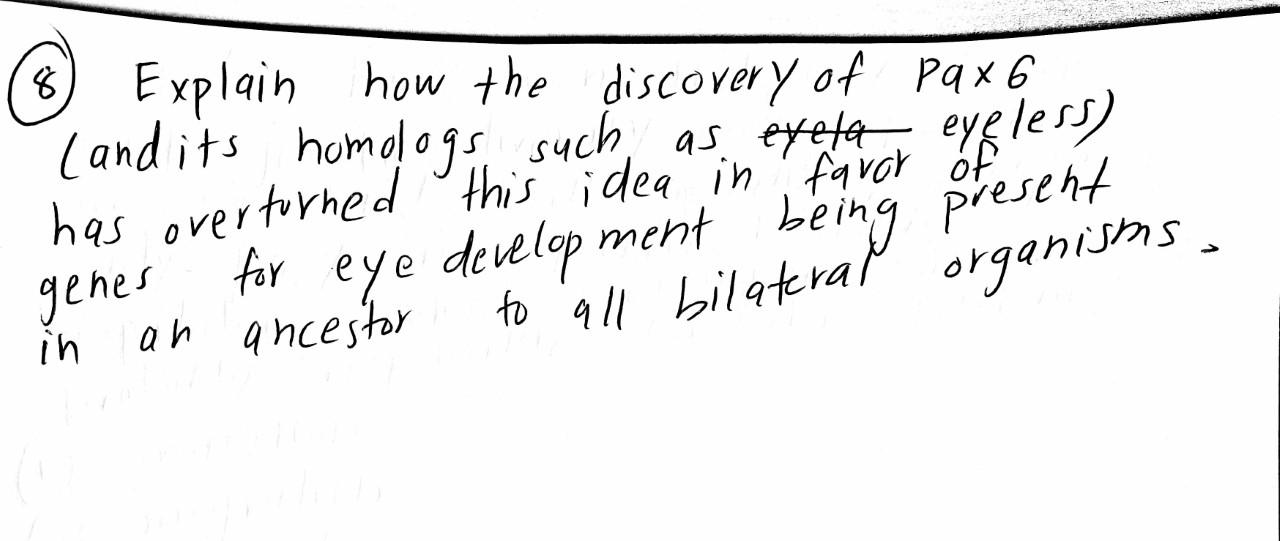 8 Explain how the discovery of Pax 6
(and its homologs such as eyela eyeless)
has overturned this idea in favor of
genes for eye development being present
in an ancestor to all bilateral organisms.